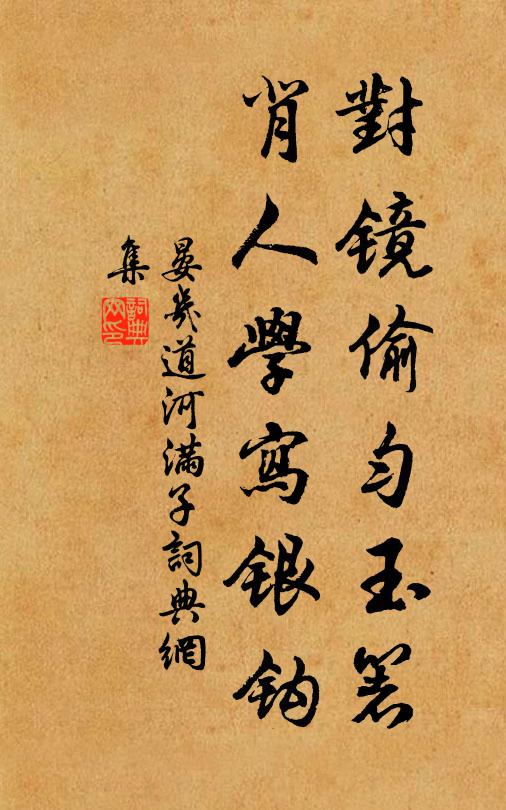 對镜偷匀玉箸
背人學寫銀钩
晏幾道河滿子詞典網
集
詞典
网印